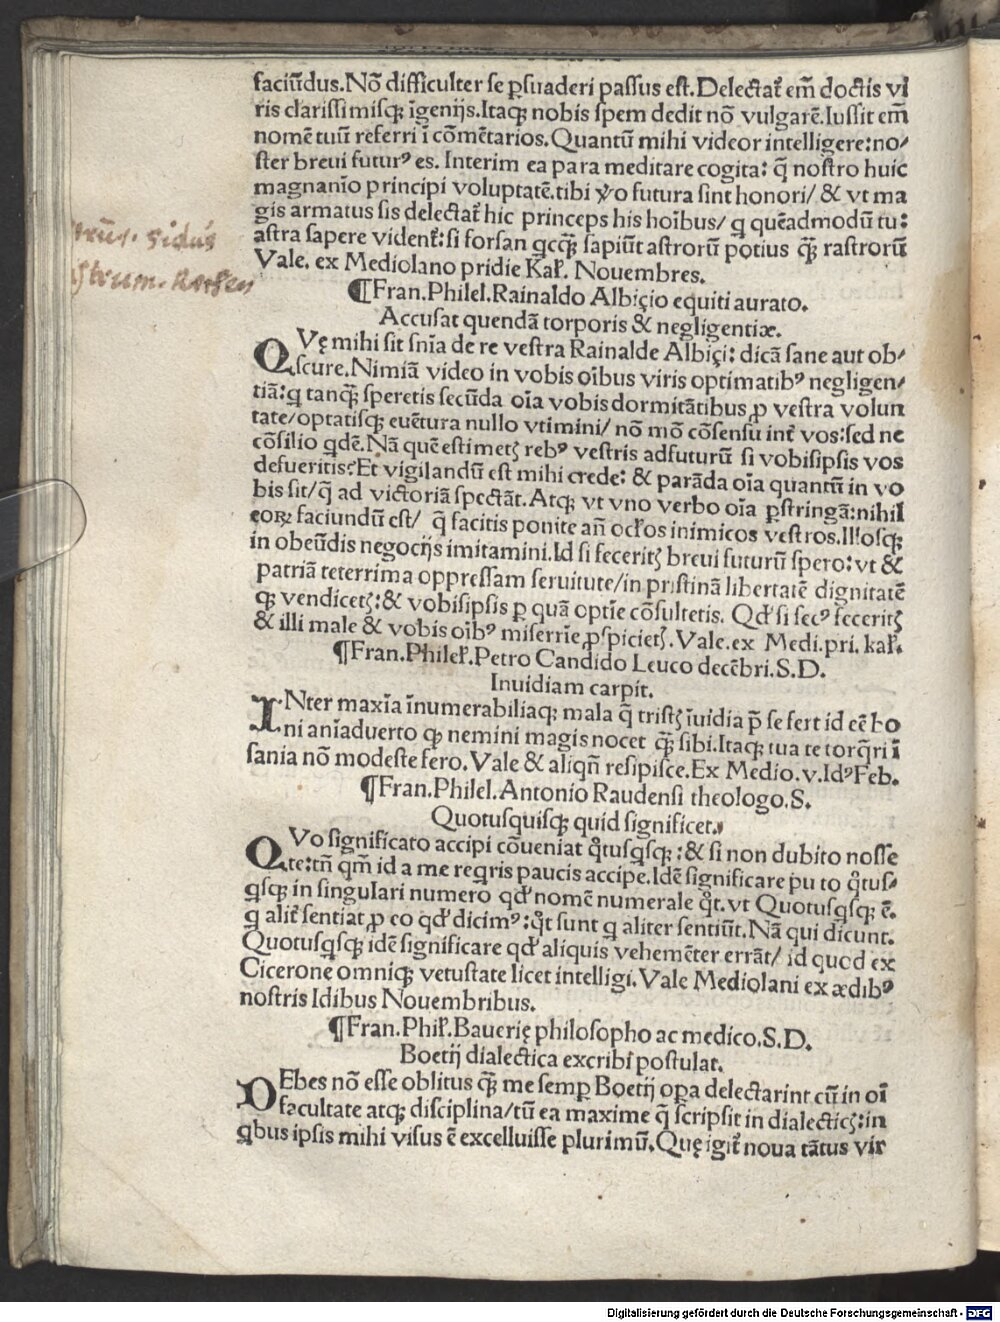 faciūdus.Nō difficulter se ꝑsuaderi passus est.Delectat᷑ em̄ doctis vi
ris clarissimisqꝫ īgenijs.Itaqꝫ nobis spem dedit nō vulgarē.Iussit em̄
nomē tuū referri ī cōmētarios.Quantū mihi videor intelligere:no/
ster breui futurꝰ es. Interim ea para meditare cogita: q̄ nostro huic
magnanīo principi voluptatē.tibi ꝟo futura sint honori/ & vt ma
gis armatus sis delectat᷑ hic princeps his hoībus/ q quēadmodū tu:
astra sapere vident᷑:si forsan qcq̄ꝫ sapiūt astrorū potius q̄ꝫ rastrorū
Vale. ex Mediolano pridie Kał. Nouembres.
trū. sidus
astrum. Rechen
¶Fran.Philel.Rainaldo Albiçio equiti aurato.
Accusat quendā torporis & negligentiæ.
QVę mihi sit snīa de re vestra Rainalde Albiçi: dicā sane aut ob/
scure.Nimiā video in vobis oībus viris optimatibꝰ negligen/
tiā:q tanq̄ꝫ speretis secūda oīa vobis dormitātibus ꝓ vestra volun
tate/optatisqꝫ euētura nullo vtimini/ nō mō cōsensu int᷑ vos:sed ne
cōsilio qdē.Nā quē estimetꝭ rebꝰ vestris adfuturū si vobisipsis vos
defueritis?Et vigilandū est mihi crede: & parāda oīa quantū in vo
bis sit/q̄ ad victoriā spectāt.Atqꝫ vt vno verbo oīa ꝑstringā:nihil
eoꝝ faciundū est/ q̄ facitis ponite añ ocłos inimicos vestros.Illosqꝫ
in obeūdis negocijs imitamini.Id si feceritꝭ breui futurū spero:vt &
patriā teterrima oppressam seruitute/in pristinā libertatē dignitatē
qꝫ vendicetꝭ:& vobisipsis ꝑ quā optīe cōsultetis. Qđ si secꝰ feceritꝭ
& illi male & vobis oībꝰ miserrīe ꝓspicietꝭ.Vale.ex Medi.pri. kał.
¶Fran.Phileł.Petro Candido Leuco decēbri.S.D.
Inuidiam carpit.
INter maxīa īnumerabiliaqꝫ mala q̄ tristꝭ īuidia p̄ se fert id eē bo
ni anīaduerto qꝫ nemini magis nocet q̄ꝫ sibi.Itaqꝫ tua te torq̄ri ī
sania nō modeste fero.Vale & aliqñ resipisce.Ex Medio.v.Idꝰ Feb.
¶Fran.Philel.Antonio Raudensi theologo.S.
Quotusquisqꝫ quid significet.
QVo significato accipi cōueniat q̊tusqsqꝫ:& si non dubito nosse
te:tñ qm̄ id a me reqris paucis accipe.Idē significare puto q̊tus/
qsqꝫ in singulari numero qđ nomē numerale q̊t.vt Quotusqsqꝫ ē.
q alit᷑ sentiat ꝓ eo qđ dicimꝰ:q̊t sunt q aliter sentiūt.Nā qui dicunt.
Quotusqsqꝫ idē significare qđ aliquis vehemēter errāt/ id quod ex
Cicerone omniqꝫ vetustate licet intelligi.Vale Mediolani ex ædibꝰ
nostris Idibus Nouembribus.
¶Fran.Phił.Bauerię philosopho ac medico.S.D.
Boetij dialectica excribi postulat.
DEbes nō esse oblitus q̄ꝫ me semꝑ Boetij oꝑa delectarint cū in oī
facultate atqꝫ disciplina/tū ea maxime q̄ scripsit in dialecticꝭ:in
qbus ipsis mihi visus ē excelluisse plurimū.Quę igit᷑ noua tātus vir
Digitalisierung gefördert durch die Deutsche Forschungsgemeinschaft - DFG